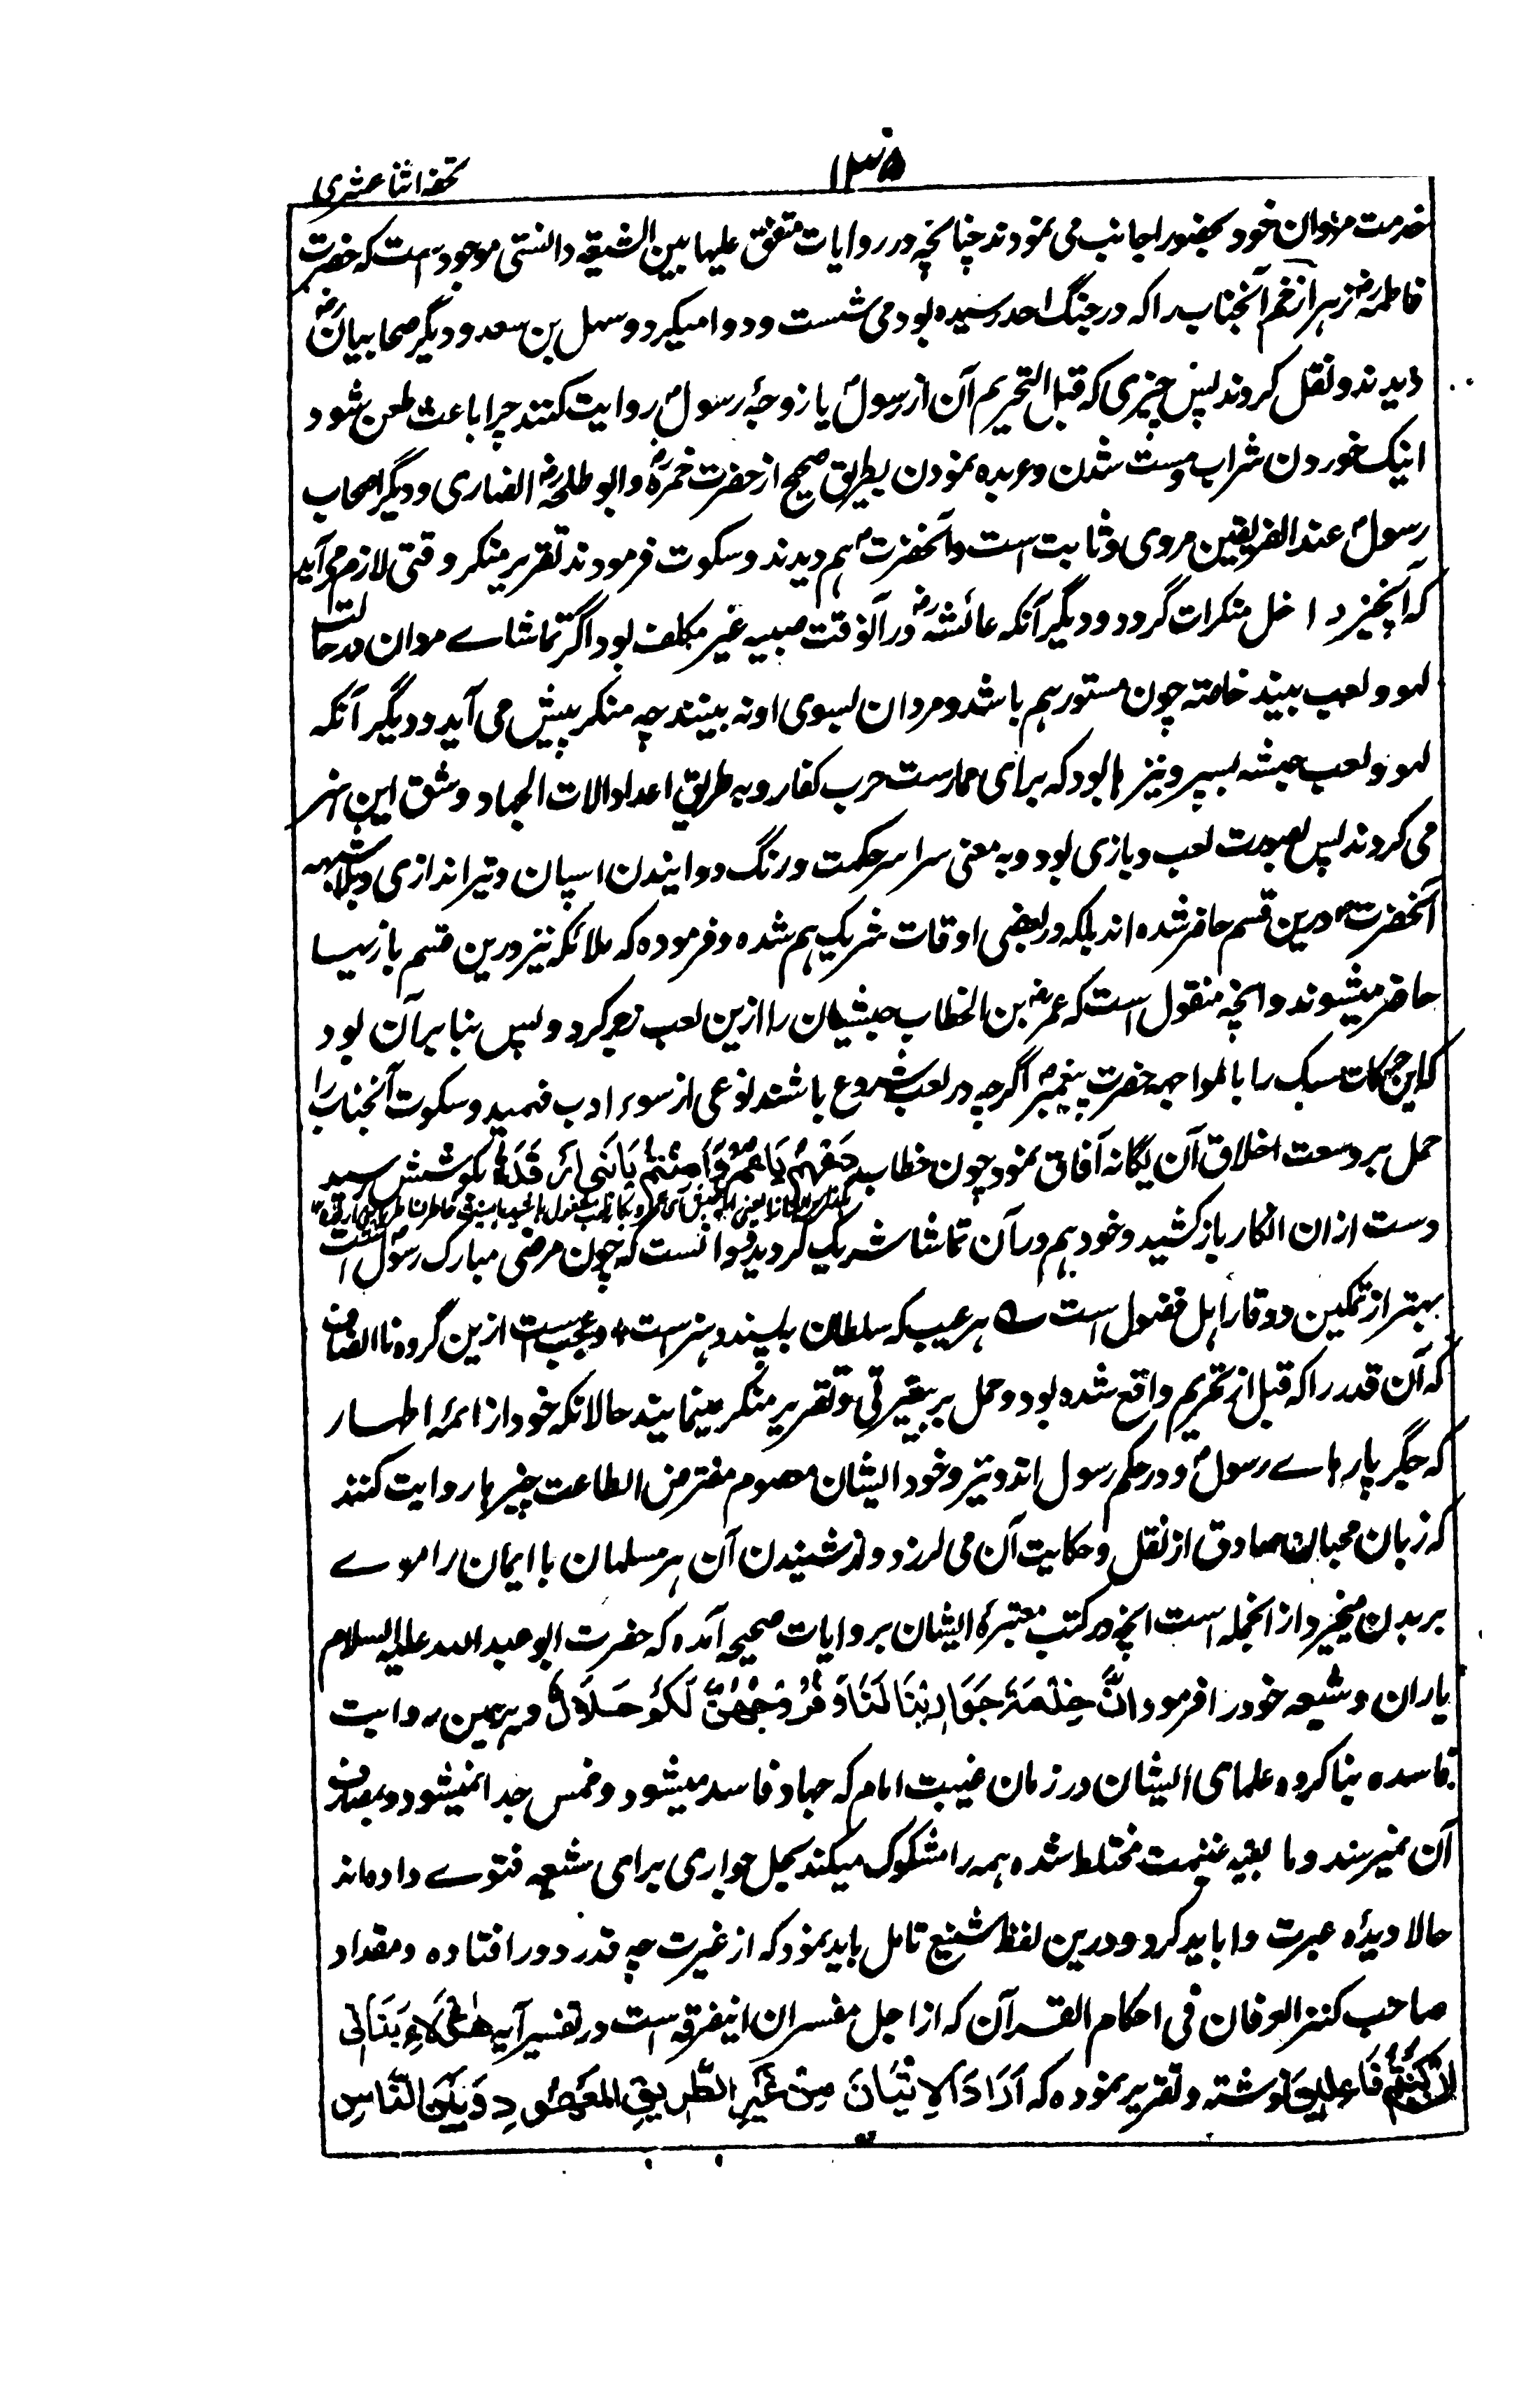 تحفه اثنا عشری
خدمت مردان خود بحضور اجانب می نمودند چنانچه در روایات متفق علیها بین الشیعه والسنی موجود است که حضرت
فاطمه زهرا زخم آنجناب را که در جنگ احد رسیده بود می شست و دوا میکرد و سهل بن سعد و دیگر صحابیان
دیدند و نقل کردند پس چیزی که قبل التحریم آن از رسولؐ یا زوجهٔ رسولؐ روایت کنند چرا باعث طعن شود
اینک خوردن شراب و مست شدن و عربده نمودن بطریق صحیح از حضرت حمزهؓ و ابو طلحهؓ انصاری و دیگر اصحاب
رسولؐ عند الفریقین مروی و ثابت است و آنحضرتؐ هم دیدند و سکوت فرمودند تقریر منکر وقتی لازم می آید
که آنچیز داخل منکرات گردد و دیگر آنکه عائشهؓ در آنوقت صبیه غیر مکلف بود اگر تماشاے مردان در حالت
لهو و لعب ببیند خاصته چون مستور هم باشد و مردان بسوی او نه بینند چه منکر پیش می آید و دیگر آنکه
لهو و لعب حبشه بسپر و نیزها بود که برای ممارست حرب کفار و به طریق اعداد الات الجهاد و مشق این هنر
می کردند پس بصورت لعب و بازی بود و به معنی سراسر حکمت و رنگ دوانیدن اسپان و تیر اندازی و بلا شبهه
آنحضرتؐ درین قسم حاضر شده اند بلکه در بعضی اوقات شریک هم شده و فرموده که ملائکه نیز درین قسم بازیها
حاضر میشوند و آنچه منقول است که عمرؓ بن الخطاب حبشیان را ازین لعب زجر کرد و پس بنا بر آن بود
که این حرکات سبک را بالمواجهه حضرت پیغمبرؐ اگرچه در لعب مشروع باشند نوعی از سوء ادب فهمید و سکوت آنجناب را
حمل بر وسعت اخلاق آن یگانه آفاق نمود چون خطاب دَعْهُمْ يَا عُمَرُ وَ اَمْنًا يَا بَنِي اَرْفَدَة بگوشش رسید
دست ازان انکار باز کشید و خود هم در آن تماشا شریک گردید و دانست که چون مرضی مبارک رسولؐ است
بهتر از تمکین و وقار اهل فضول است ؎ هر عیب که سلطان بپسندد هنر است و عجب است ازین گروه نا انصاف
که آن قدر را که قبل از تحریم واقع شده بود و حمل بر بیغیرتی و تقریر منکر مینمایند حالانکه خود از ائمهٔ اطهار
که جگر پارهاے رسولؐ و در حکم رسول اند و نیز و خود ایشان معصوم مفترض الطاعت چیزها روایت کنند
که زبان محبان صادق از نقل و حکایت آن می لرزد و از شنیدن آن هر مسلمان با ایمان را موے
بر بدن میخیزد از انجمله است آنچه در کتب معتبرهٔ ایشان بروایات صحیحه آمده که حضرت ابو عبد الله علیه السلام
یاران و شیعه خود را فرمود اِنَّ خِدْمَةَ جَوَارِيْنَا لَنَا وَ فُرُوْجُهُنَّ لَكُمْ حَلَالٌ و بر همین روایت
فاسده بنا کرده علمای ایشان در زمان غیبت امام که جهاد فاسد میشود و خمس جدا نمیشود و بمصارف
آن نمیرسند و ما بقیه غنیمت مختلط شده همه را مشکوک میکند بحل جواری برای شیعه فتوے داده اند
حالا دیدهٔ عبرت وا باید کرد و درین لفظ شنیع تامل باید نمود که از غیرت چه قدر دور افتاده و مقداد
صاحب کنز العرفان فی احکام القرآن که از اجل مفسران اینفرقه است در تفسیر آیه هٰؤُلَاءِ بَنَاتِي
اِنْ كُنْتُمْ فَاعِلِيْنَ نوشته و تقریر نموده که اَرَادَ الْاِتْيَانَ مِنْ غَيْرِ الطَّرِيْقِ الْمَعْهُوْدِ وَ بَيْنَ النَّاسِ